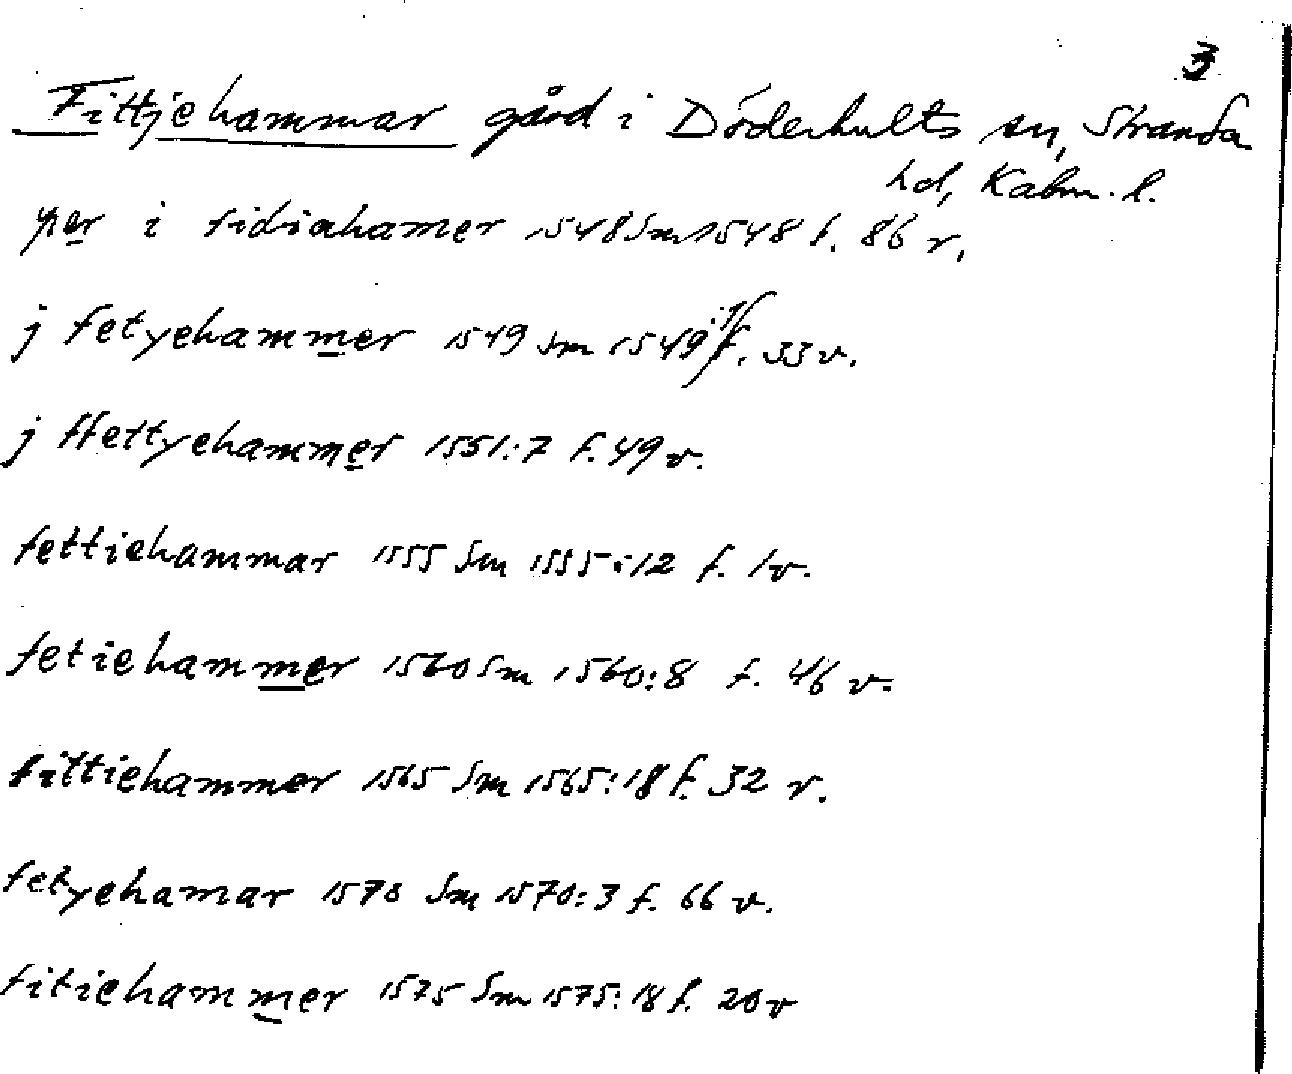 3
Fittjehammar gård i Döderhults sn, Stranda
hd, Kalm. l.
per i fidiahamer 1548 Sm 1548 f. 86 r.
j fetyehammer 1549 Sm 1549:1 f. 33 v.
j ffettyehammer 1551:7 f. 49 v.
fettiehammar 1555 Sm 1555:12 f. 1 v.
fetiehammer 1560 Sm 1560:8 f. 46 v.
fittiehammer 1565 Sm 1565:18 f. 32 r.
fetyehamar 1570 Sm 1570:3 f. 66 v.
fitiehammer 1575 Sm 1575:18 f. 20 v